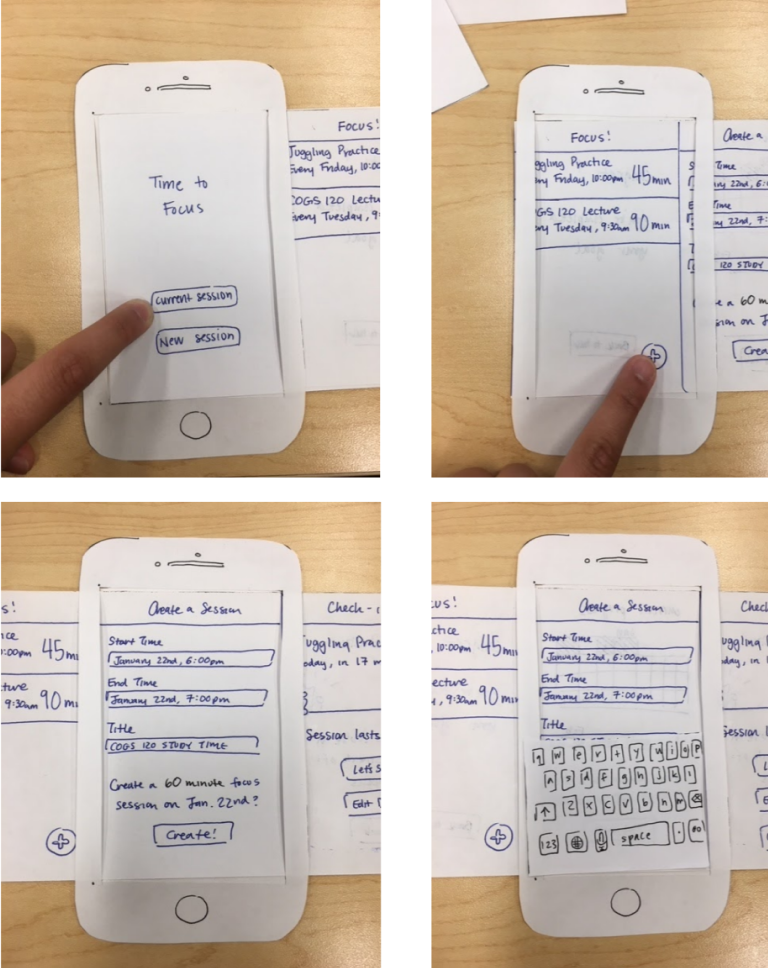 Time to
Focus
current session
New session
FOCUS!
Juggling Practice
Every Friday, 10:00
COGS 120 Lectu
Every Tuesday, 9:
FOCUS!
ggling Practice
ry Friday, 10:00pm 45 min
GS 120 Lecture
ry Tuesday, 9:30am 90 min
Create a
Time
ny 22nd, 6:
Time
ny 22nd, 7:
120 STUDY
e a 60 m
sion on Ja
Crea
s!
ice
:00pm 45 mi
ture
9:30am 90 mi
Create a Session
Start Time
January 22nd, 6:00pm
End Time
January 22nd, 7:00pm
Title
COGS 120 STUDY TIME
Create a 60 minute focus
session on Jan. 22nd?
Create!
Check-i
uggling Prac
oday, in 17 m
Session lasts
Let's s
Edit
us!
ctice
10:00pm 45 mi
ecture
, 9:30am 90 mi
Create a Session
Start Time
January 22nd, 6:00pm
End Time
January 22nd, 7:00pm
Title
q w e r t y u i o p
a s d f g h j k l
z x c v b n m
123 space .
Check
uggling
day, in 1
Session l
L
E